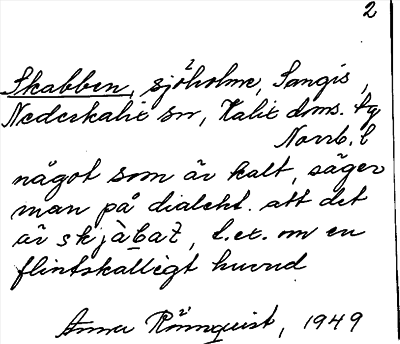 2
Skabben, sjöholme, Sangis,
Nederkalix sn, Kalix dms. tg
Norrb. l
något som är kalt, säger
man på dialekt. att det
är skjàbat, t.ex. om en
flintskalligt huvud
Anna Rönnquist, 1949